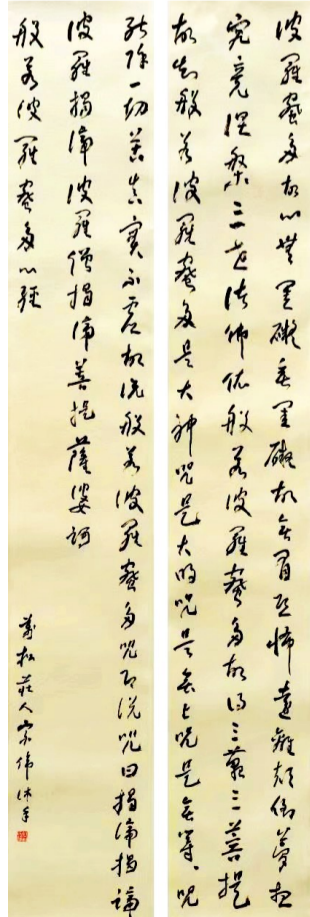 波羅蜜多故心無罣礙無罣礙故無有恐怖遠離顛倒夢想
究竟涅槃三世諸佛依般若波羅蜜多故得三藐三菩提
故知般若波羅蜜多是大神咒是大明咒是無上咒是無等、咒
能除一切苦真實不虛故說般若波羅蜜多咒即說咒曰揭諦揭諦
波羅揭諦波羅僧揭諦菩提薩婆訶
般若波羅蜜多心經
萬松莊人宗偉沐手